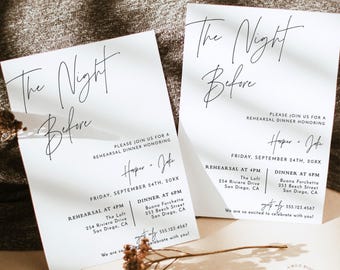 The Night
Before
PLEASE JOIN US FOR A
REHEARSAL DINNER HONORING
Harper + Jake
FRIDAY, SEPTEMBER 24TH, 20XX
REHEARSAL AT 4PM
The Loft
254 Riviera Drive
San Diego, CA
DINNER AT 6PM
Buona Forchetta
3001 Beech Street
San Diego, CA
555.123.4567
We are so excited to celebrate with you!
The Night
Before
PLEASE JOIN US FOR A
REHEARSAL DINNER HONORING
Harper + Jake
FRIDAY, SEPTEMBER 24TH, 20XX
REHEARSAL AT 4PM
The Loft
254 Riviera Drive
San Diego, CA
DINNER AT 6PM
Buona Forchetta
3001 Beech Street
San Diego, CA
555.123.4567
We are so excited to celebrate with you!